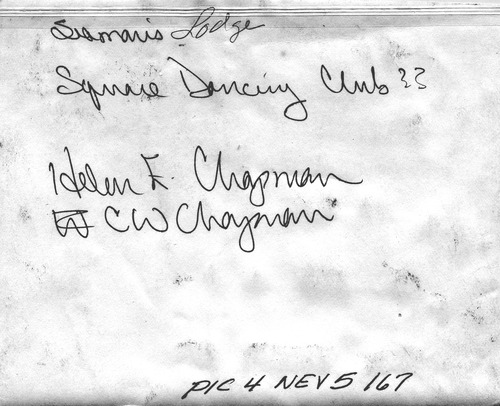 Siamaris Lodge
Square Dancing Club ??
Helen E. Chapman
W CW Chapman
PIC 4 NEV 5 167